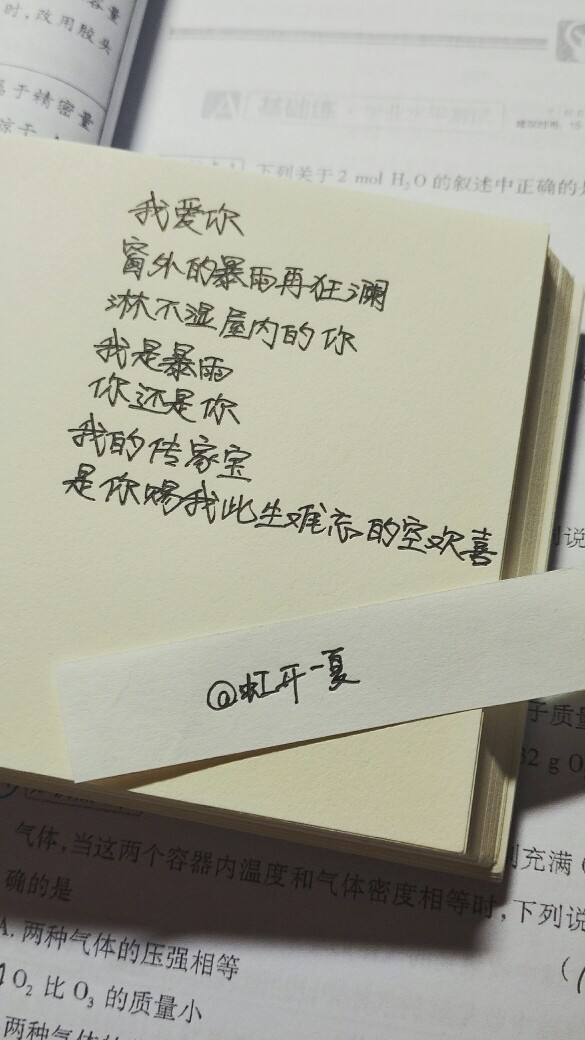 容量
时,改用胶头
属于精密量
下列关于2 mol H₂O的叙述中正确的是
我爱你
窗外的暴雨再狂澜
淋不湿屋内的你
我是暴雨
你还是你
我的传家宝
是你赐我此生难忘的空欢喜
@虹开一夏
子质量
32 g O
气体,当这两个容器内温度和气体密度相等时,下列说
充满
确的是
A. 两种气体的压强相等
O₂比O₃的质量小
两种气体的